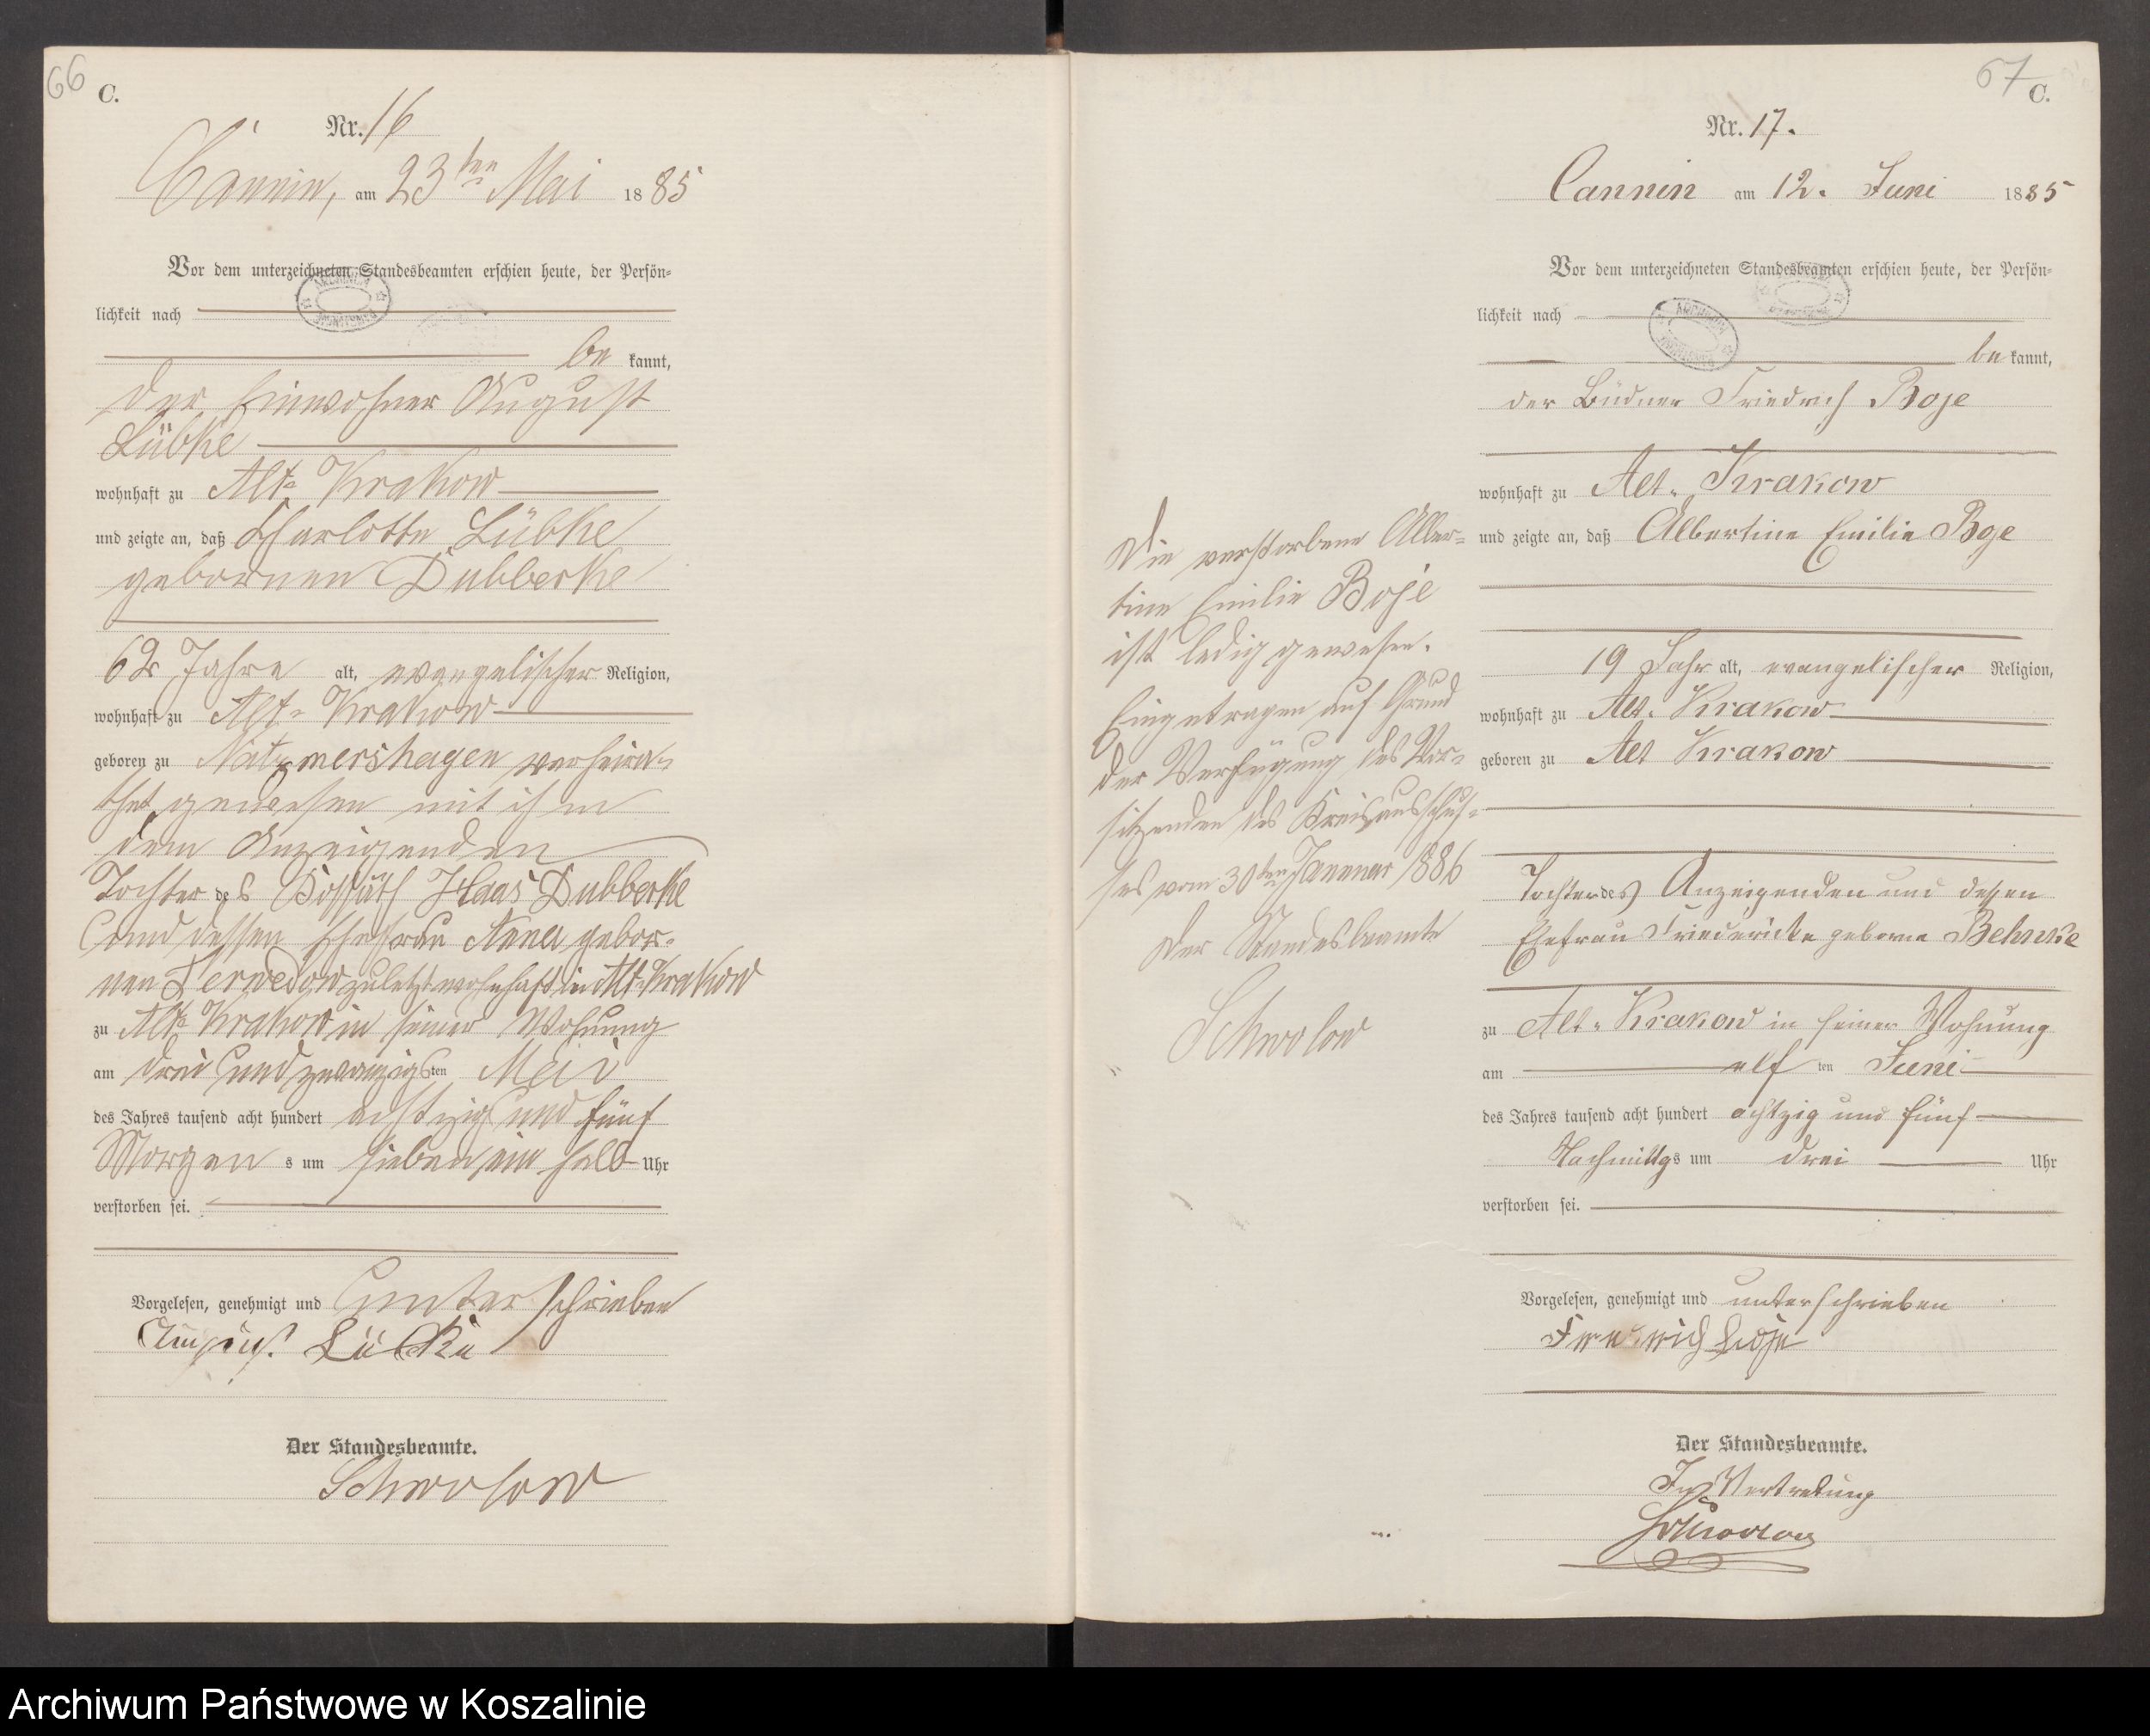 66
C.
Nr. 16
Cannin, am 23ten Mai 1885
Vor dem unterzeichneten Standesbeamten erschien heute, der Persön-
lichkeit nach
be kannt,
der Einwohner August
Lübke
wohnhaft zu Alt-Krakow
und zeigte an, daß Charlotte Lübke
gebornen Dubberke
62 Jahre alt, evangelischer Religion,
wohnhaft zu Alt-Krakow
geboren zu Natzmershagen verheira-
thet gewesen mit ihm
dem Anzeigenden
Tochter des Kossäth Haas Dubberke
und dessen Ehefrau Anna gebor-
nen zuletzt wohnhaft in Alt-Krakow
zu Alt-Krakow in seiner Wohnung
am drei und zwanzigsten Mai
des Jahres tausend acht hundert achtzig und fünf
Morgens um sieben ein halb Uhr
verstorben sei.
Vorgelesen, genehmigt und unterschrieben
August Lübke
Der Standesbeamte.
Schwolow
67
C.
Nr. 17.
Cannin am 12. Juni 1885
Vor dem unterzeichneten Standesbeamten erschien heute, der Persön-
lichkeit nach
be kannt,
der Büdner Friedrich Boje
wohnhaft zu Alt-Krakow
und zeigte an, daß Albertine Emilie Boje
19 Jahr alt, evangelischer Religion,
wohnhaft zu Alt-Krakow
geboren zu Alt Krakow
Tochter des Anzeigenden und dessen
Ehefrau Friedericke geborne Behnke
zu Alt-Krakow in seiner Wohnung
am elf ten Juni
des Jahres tausend acht hundert achtzig und fünf
Nachmittgs um drei Uhr
verstorben sei.
Vorgelesen, genehmigt und unterschrieben
Friedrich Boje
Der Standesbeamte.
In Vertretung
Die verstorbene Alber-
tine Emilie Boje
ist ledig gewesen.
Eingetragen auf Grund
der Verfügung des Vor-
sitzenden des Kreisausschus-
ses vom 30ten Januar 1886
Der Standesbeamte
Schwolow
Archiwum Państwowe w Koszalinie